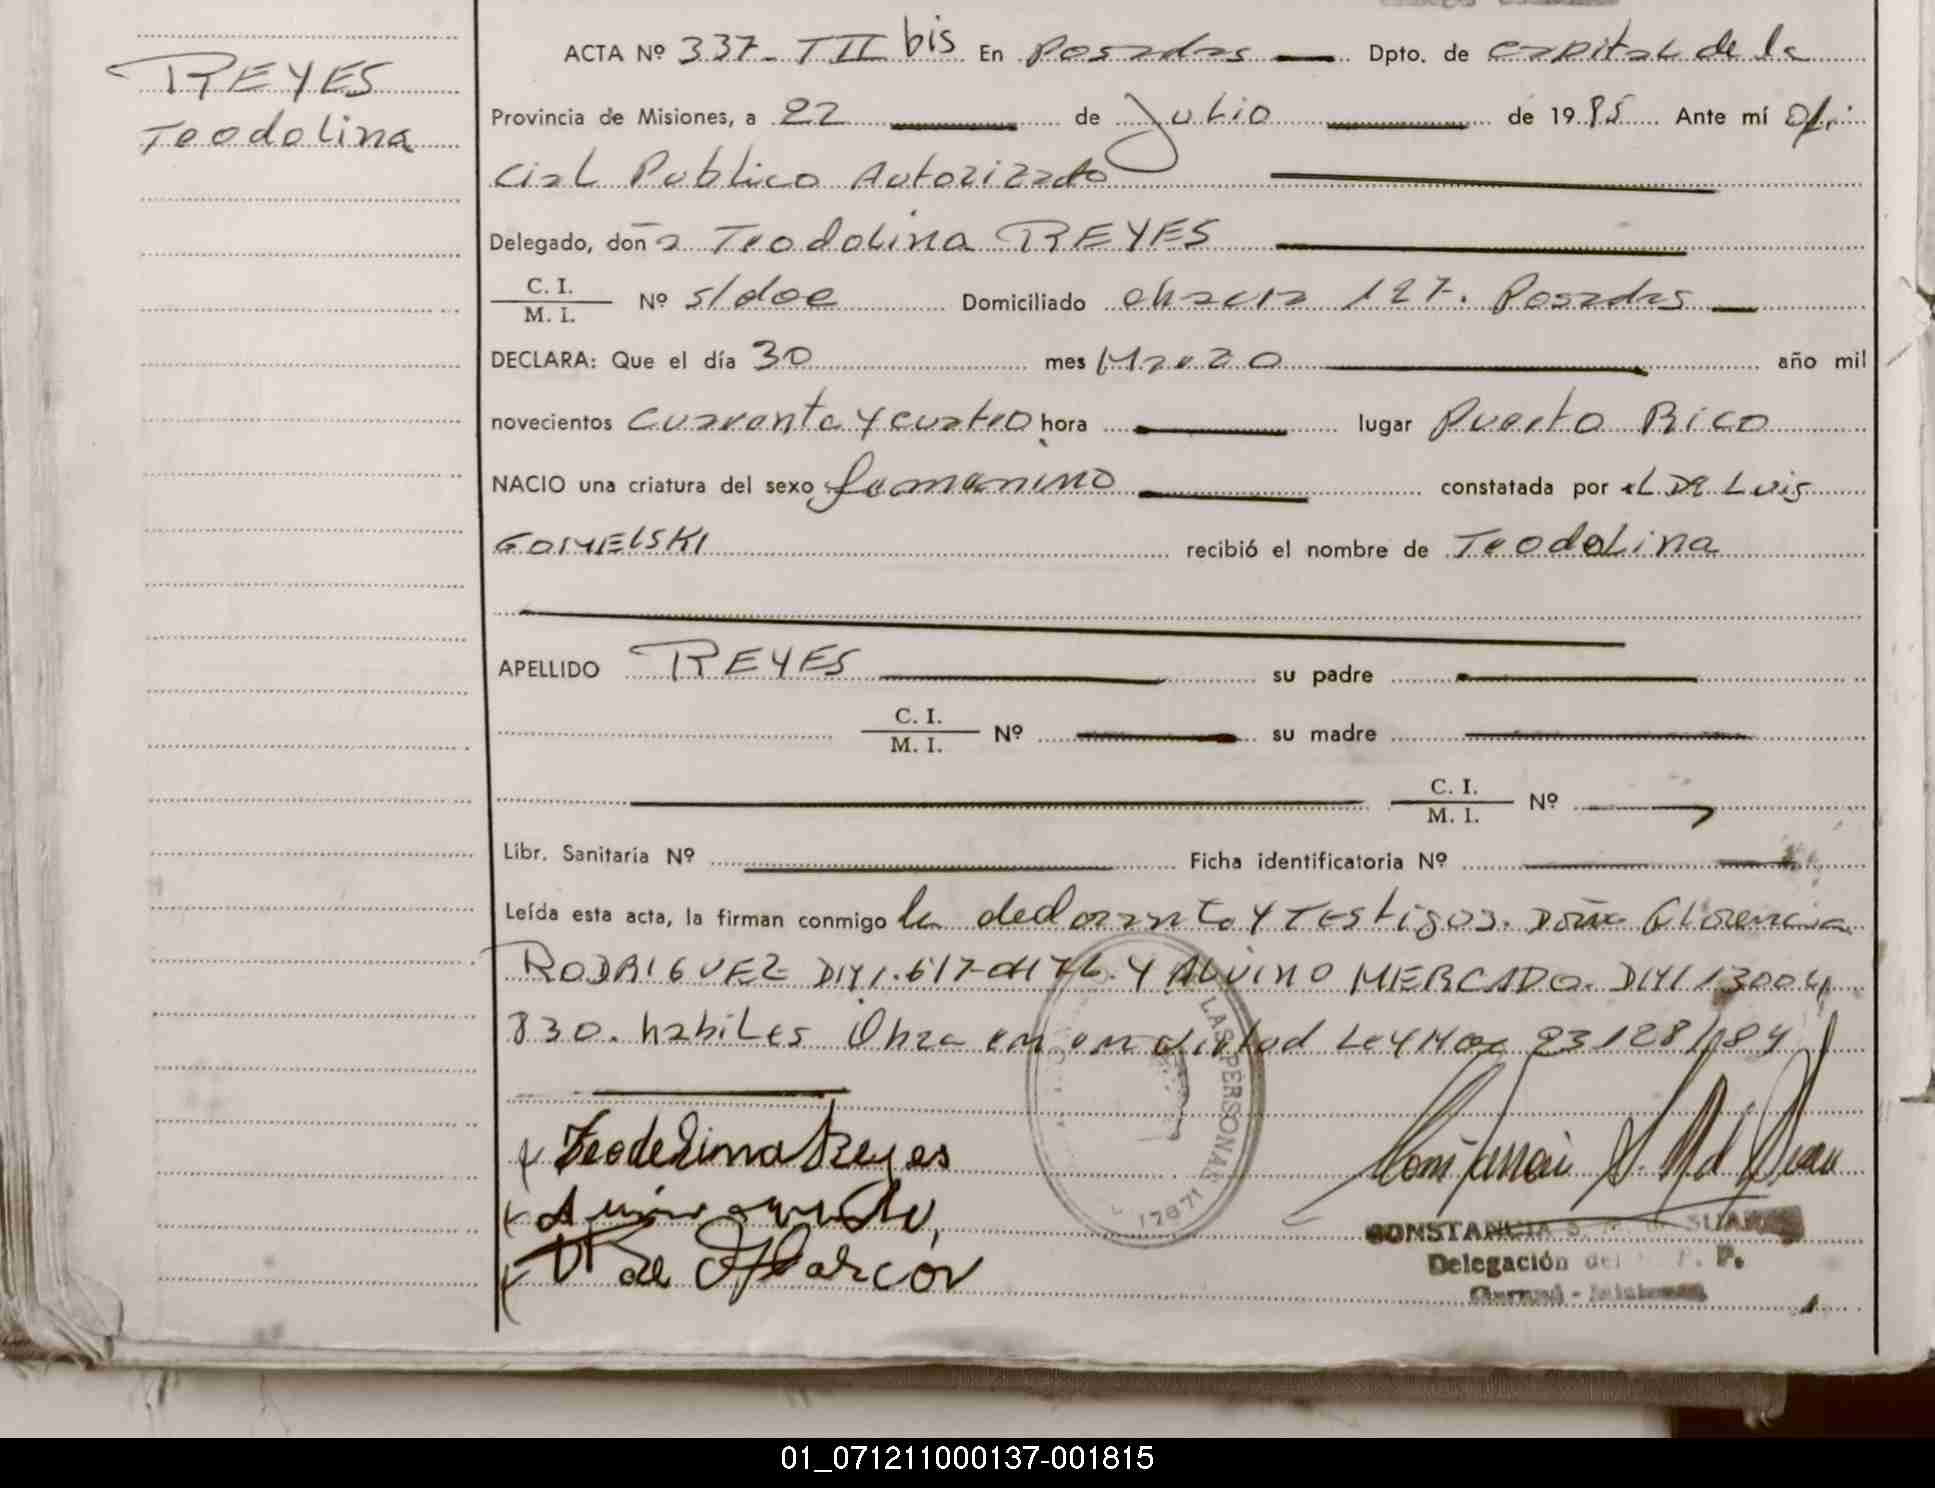 REYES
Teodolina
ACTA Nº 337- TII bis En Posadas Dpto. de capital de la
Provincia de Misiones, a 22 de Julio de 1985 Ante mí Ofi
cial Publico Autorizado
Delegado, doña Teodolina REYES
C. I.
M. I. Nº s/doc Domiciliado chacra 127. Posadas
DECLARA: Que el día 30 mes Marzo año mil
novecientos cuarenta y cuatro hora lugar Puerto Rico
NACIO una criatura del sexo femenino constatada por el DR Luis
GOMELSKI recibió el nombre de Teodolina
APELLIDO REYES su padre
C. I.
M. I. Nº su madre
C. I.
M. I. Nº
Libr. Sanitaria Nº Ficha identificatoria Nº
Leída esta acta, la firman conmigo la declarante y Testigos. Doña Florencia
RODRIGUEZ y ALVINO MERCADO. DMI 13004
830. habiles Ley 23128/84
Teodelina Reyes
de Alarcon
LAS PERSONAS
CONSTANCIA S. SUAREZ
Delegación del P.
01_071211000137-001815